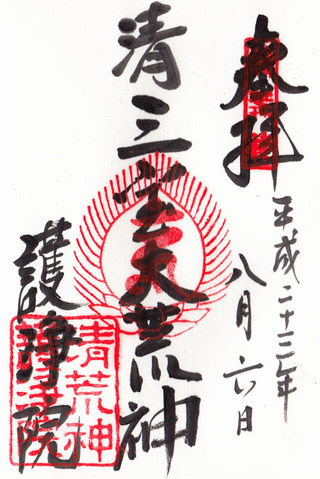 奉拝
平成二十三年
八月六日
清三宝大荒神
護浄院
清荒神
護浄院